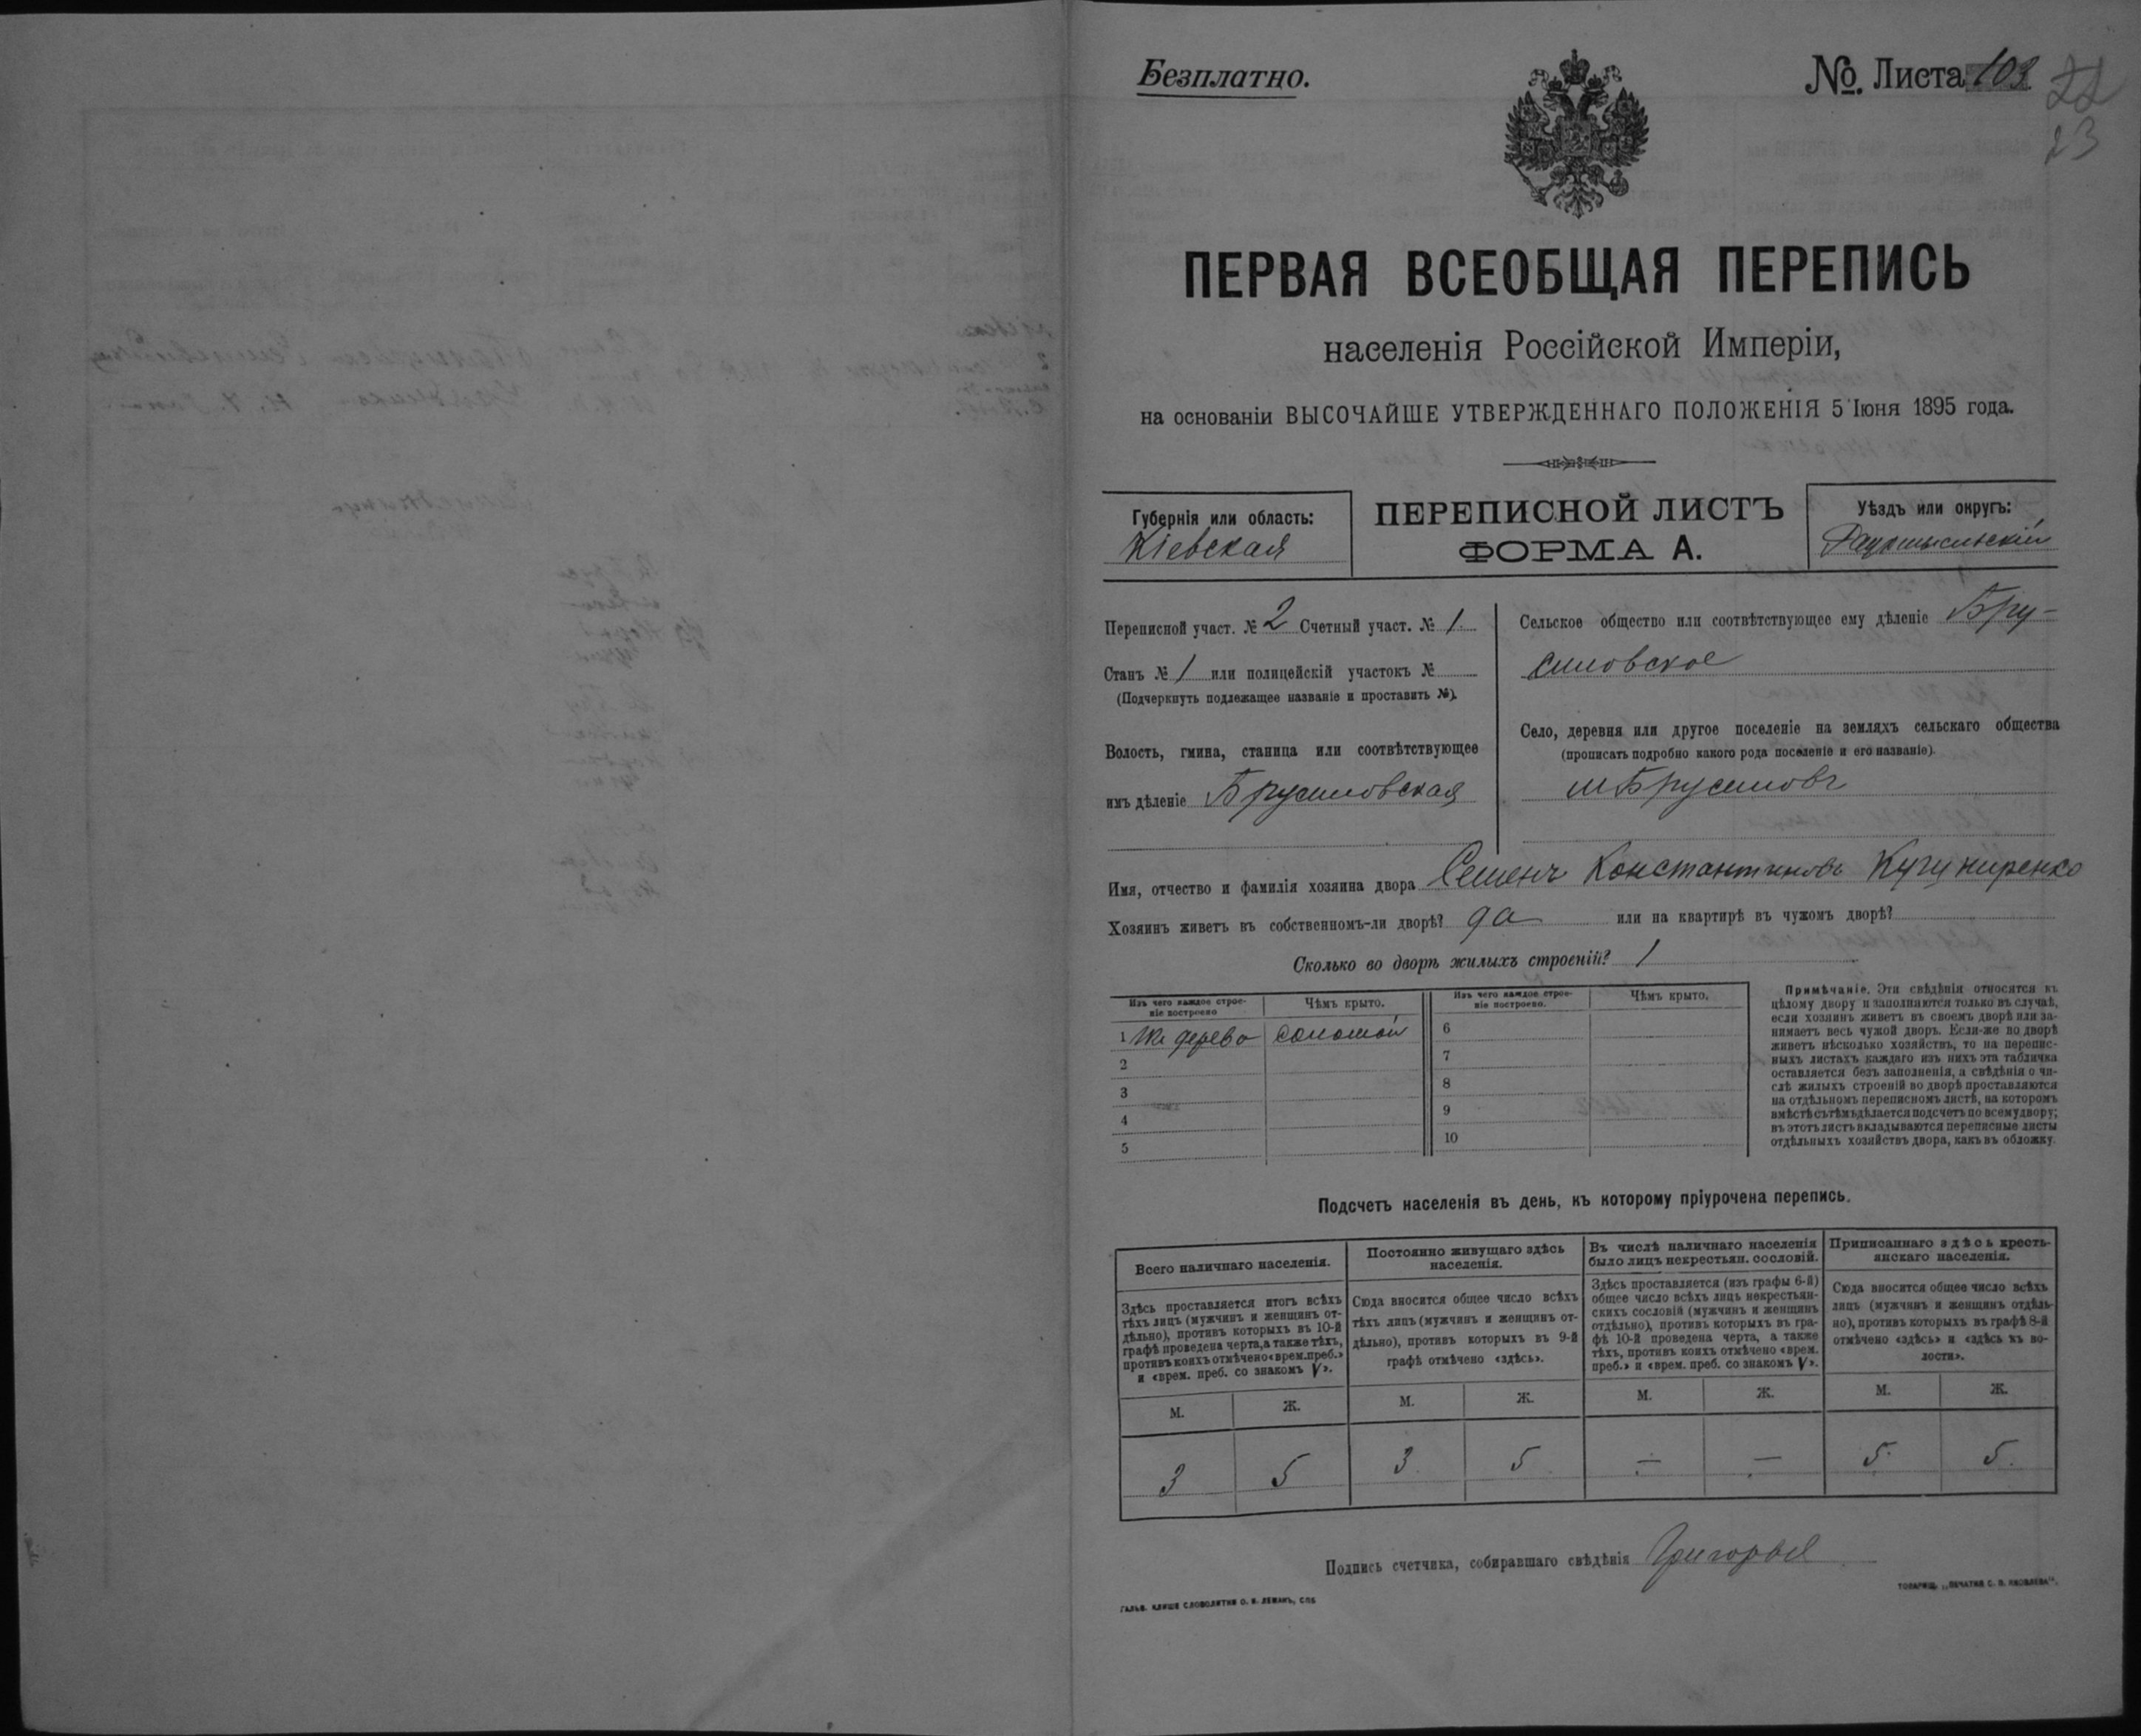 Безплатно.
№. Листа 103
22
23
ПЕРВАЯ ВСЕОБЩАЯ ПЕРЕПИСЬ
населенія Россійской Имперіи,
на основаніи ВЫСОЧАЙШЕ УТВЕРЖДЕННАГО ПОЛОЖЕНІЯ 5 Іюня 1895 года.
Губернія или область:
Кіевская
ПЕРЕПИСНОЙ ЛИСТЪ
ФОРМА А.
Уѣздъ или округъ:
Радомысльскій
Переписной участ. № 2 Счетный участ. № 1
Станъ № 1 или полицейскій участокъ №
(Подчеркнуть подлежащее названіе и проставить №).
Волость, гмина, станица или соотвѣтствующее
имъ дѣленіе Брусиловская
Сельское общество или соотвѣтствующее ему дѣленіе Бру-
силовское
Село, деревня или другое поселеніе на земляхъ сельскаго общества
(прописать подробно какого рода поселеніе и его названіе).
м Брусиловъ
Имя, отчество и фамилія хозяина двора Семенъ Константиновъ
Хозяинъ живетъ въ собственномъ-ли дворѣ? да или на квартирѣ въ чужомъ дворѣ?
Сколько во дворѣ жилыхъ строеній? 1
Изъ чего каждое строе-
ніе построено
Чѣмъ крыто.
Изъ чего каждое строе-
ніе построено.
Чѣмъ крыто.
1 Из дерева соломой
2
3
4
5
6
7
8
9
10
Примѣчаніе. Эти свѣдѣнія относятся къ
цѣлому двору и заполняются только въ случаѣ,
если хозяинъ живетъ въ своемъ дворѣ или за-
нимаетъ весь чужой дворъ. Если-же во дворѣ
живетъ нѣсколько хозяйствъ, то на перепис-
ныхъ листахъ каждаго изъ нихъ эта табличка
оставляется безъ заполненія, а свѣдѣнія о чи-
слѣ жилыхъ строеній во дворѣ проставляются
на отдѣльномъ переписномъ листѣ, на которомъ
вмѣстѣ съ тѣмъ дѣлается подсчетъ по всему двору;
въ этотъ листъ вкладываются переписные листы
отдѣльныхъ хозяйствъ двора, какъ въ обложку.
Подсчетъ населенія въ день, къ которому пріурочена перепись.
Всего наличнаго населенія.
Здѣсь проставляется итогъ всѣхъ
тѣхъ лицъ (мужчинъ и женщинъ от-
дѣльно), противъ которыхъ въ 10-й
графѣ проведена черта, а также тѣхъ,
противъ коихъ отмѣчено «врем. преб.»
и «врем. преб. со знакомъ V».
М. Ж.
3 5
Постоянно живущаго здѣсь
населенія.
Сюда вносится общее число всѣхъ
тѣхъ лицъ (мужчинъ и женщинъ от-
дѣльно), противъ которыхъ въ 9-й
графѣ отмѣчено «здѣсь».
М. Ж.
3 5
Въ числѣ наличнаго населенія
было лицъ некрестьян. сословій.
Здѣсь проставляется (изъ графы 6-й)
общее число всѣхъ лицъ некрестьян-
скихъ сословій (мужчинъ и женщинъ
отдѣльно), противъ которыхъ въ гра-
фѣ 10-й проведена черта, а также
тѣхъ, противъ коихъ отмѣчено «врем.
преб.» и «врем. преб. со знакомъ V».
М. Ж.
— —
Приписаннаго здѣсь кресть-
янскаго населенія.
Сюда вносится общее число всѣхъ
лицъ (мужчинъ и женщинъ отдѣль-
но), противъ которыхъ въ графѣ 8-й
отмѣчено «здѣсь» и «здѣсь въ во-
лости».
М. Ж.
5 5
Подпись счетчика, собиравшаго свѣдѣнія
ГАЛЬВ. КЛИШЕ СЛОВОЛИТНИ О. И. ЛЕМАНЪ, СПБ
ТОВАРИЩ. „ПЕЧАТНЯ С. П. ЯКОВЛЕВА".